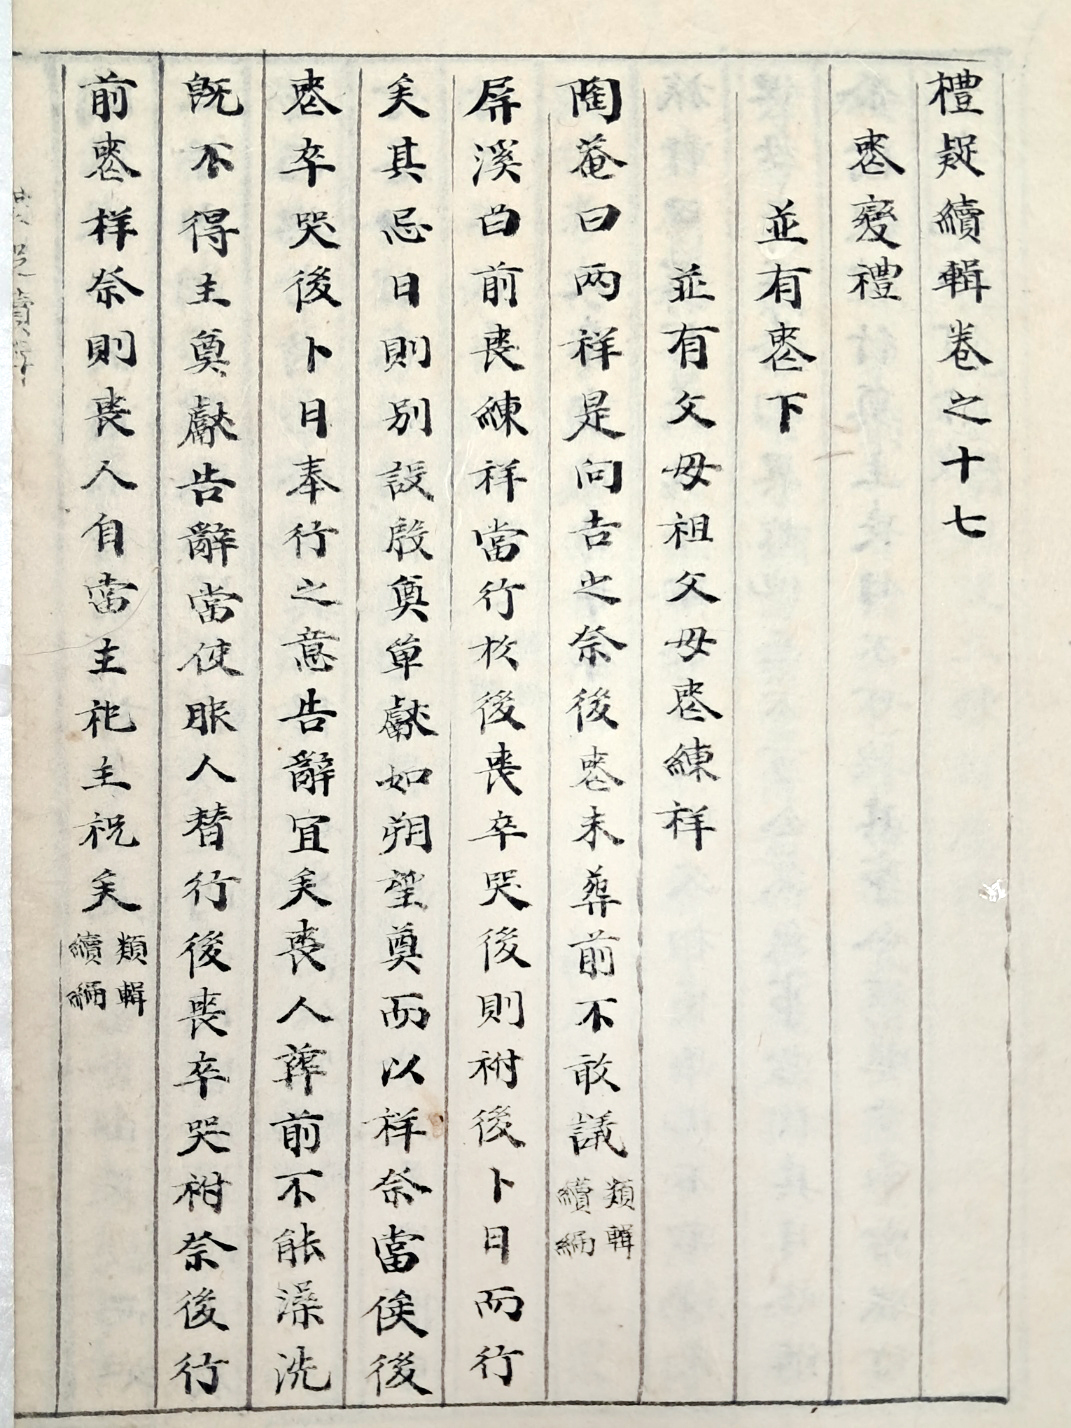 禮疑續輯卷之十七
喪變禮
並有喪下
並有父母祖父母喪練祥
陶菴曰两祥是向吉之祭後喪未葬前不敢議類輯續編
屏溪曰前喪練祥當行於後喪卒哭後則祔後卜日而行
矣其忌日則别設殷奠單獻如朔望奠而以祥祭當俟後
喪卒哭後卜日奉行之意告辭宜矣喪人葬前不能澡洗
旣不得主奠獻告辭當使服人替行後喪卒哭祔祭後行
前喪祥祭則喪人自當主祀主祝矣類輯續編